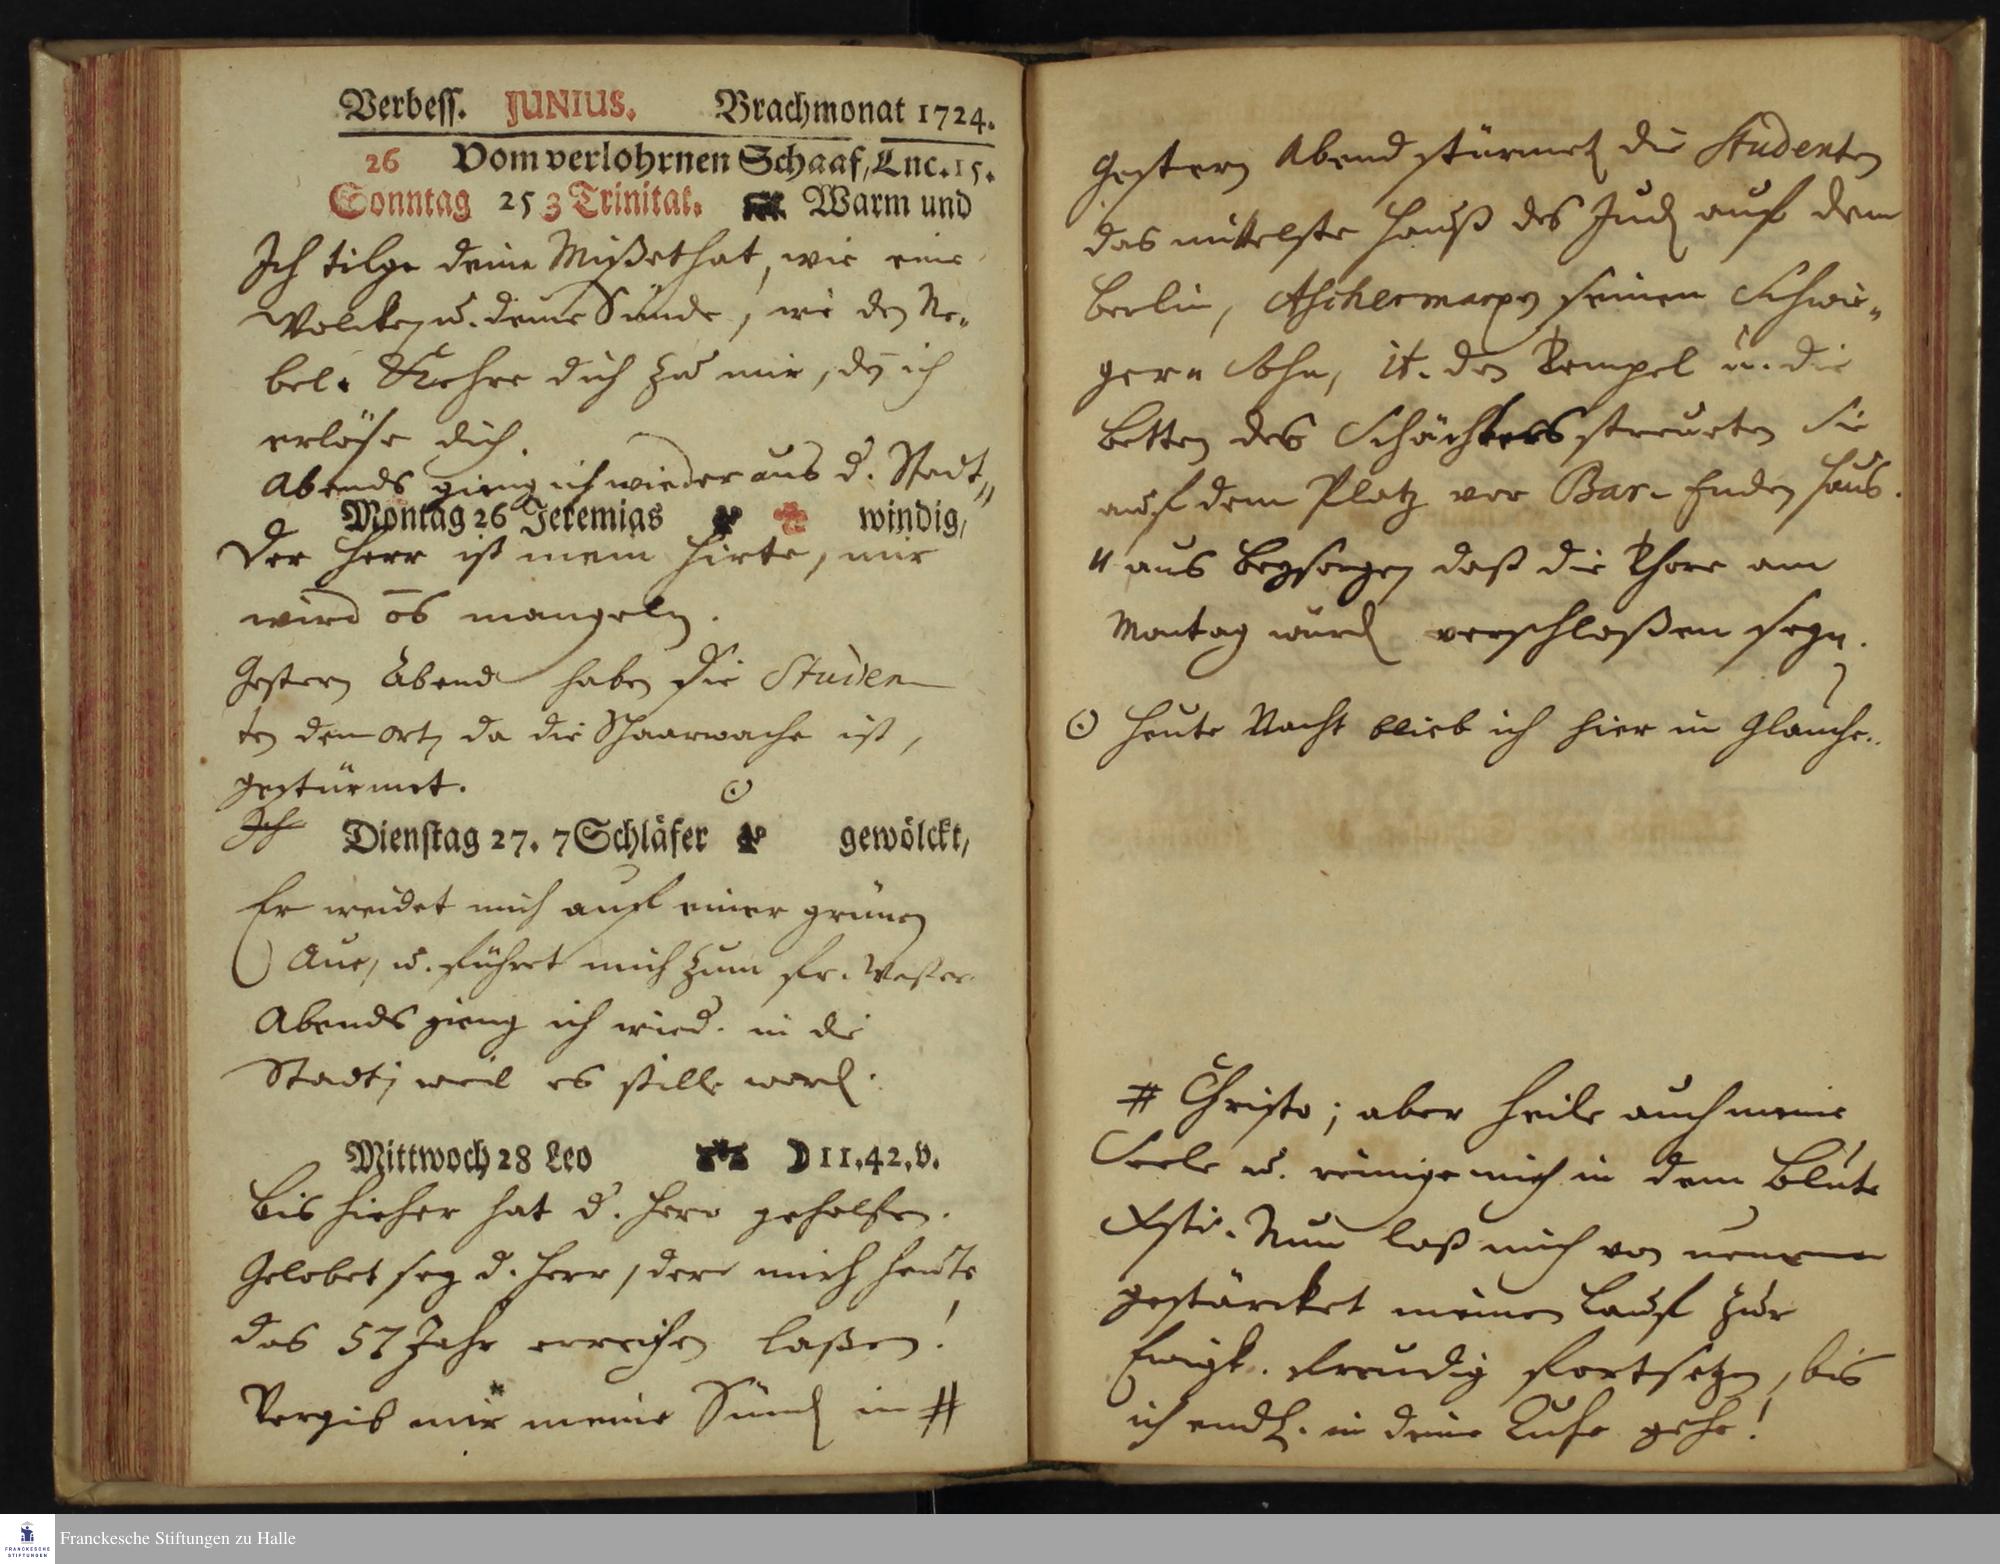 Verbess. JUNIUS. Brachmonat 1724.
26 Vom verlohrnen Schaaf, Luc. 15.
Sonntag 25 3 Trinitat. Warm und
Ich tilge deine Mißethat, wie eine
Wolcken u. deine Sünde, wie den Ne-
bel. Kehre dich zu mir, den ich
erlöse dich.
Abends gieng ich wieder aus d. Stadt "
Montag 26 Jeremias windig,
Der Herr ist mein Hirte, mir
wird mangeln.
Gestern Abend haben die Studen
ten den ort, da die Schaarwache ist,
gestürmet. ☉
Ich Dienstag 27. 7 Schläfer gewölckt,
Er weidet mich auf einer grünen
Aue, u. führet mich zum fr. Waßer.
Abends gieng ich wied. in die
Stadt, weil es stille word.
Mittwoch 28 Leo D 11,42,v.
Bis hieher hat d. Herr geholfen.
Gelobet sey d. Herr, der mich heute
das 57 Jahr erreichen laßen!
Vergib mir meine Sünd in #
Gestern Abend stürmet die Studenten
das mittelste Hauß des Jud auf dem
Berlin, seinen Schwie-
gern Sohn, it. den Tempel u. die
Betten des Schächters streueten Sie
auf dem Platz vor Bar- Enden Haus.
" aus Beysorgen daß die Thore am
Montag würd verschloßen seyn.
☉ Heute Nacht blieb ich hier in Glauche.
# Christo; aber heile auch meine
Seele u. reinige mich in dem Blute
Xsti. Nun laß mich von neuem
gestärcket meinen Lauf zur
Ewigk. freudig fortsetzen, bis
ich endl. in deine Ruhe gehe!
Franckesche Stiftungen zu Halle
FRANCKESCHE
STIFTUNGEN